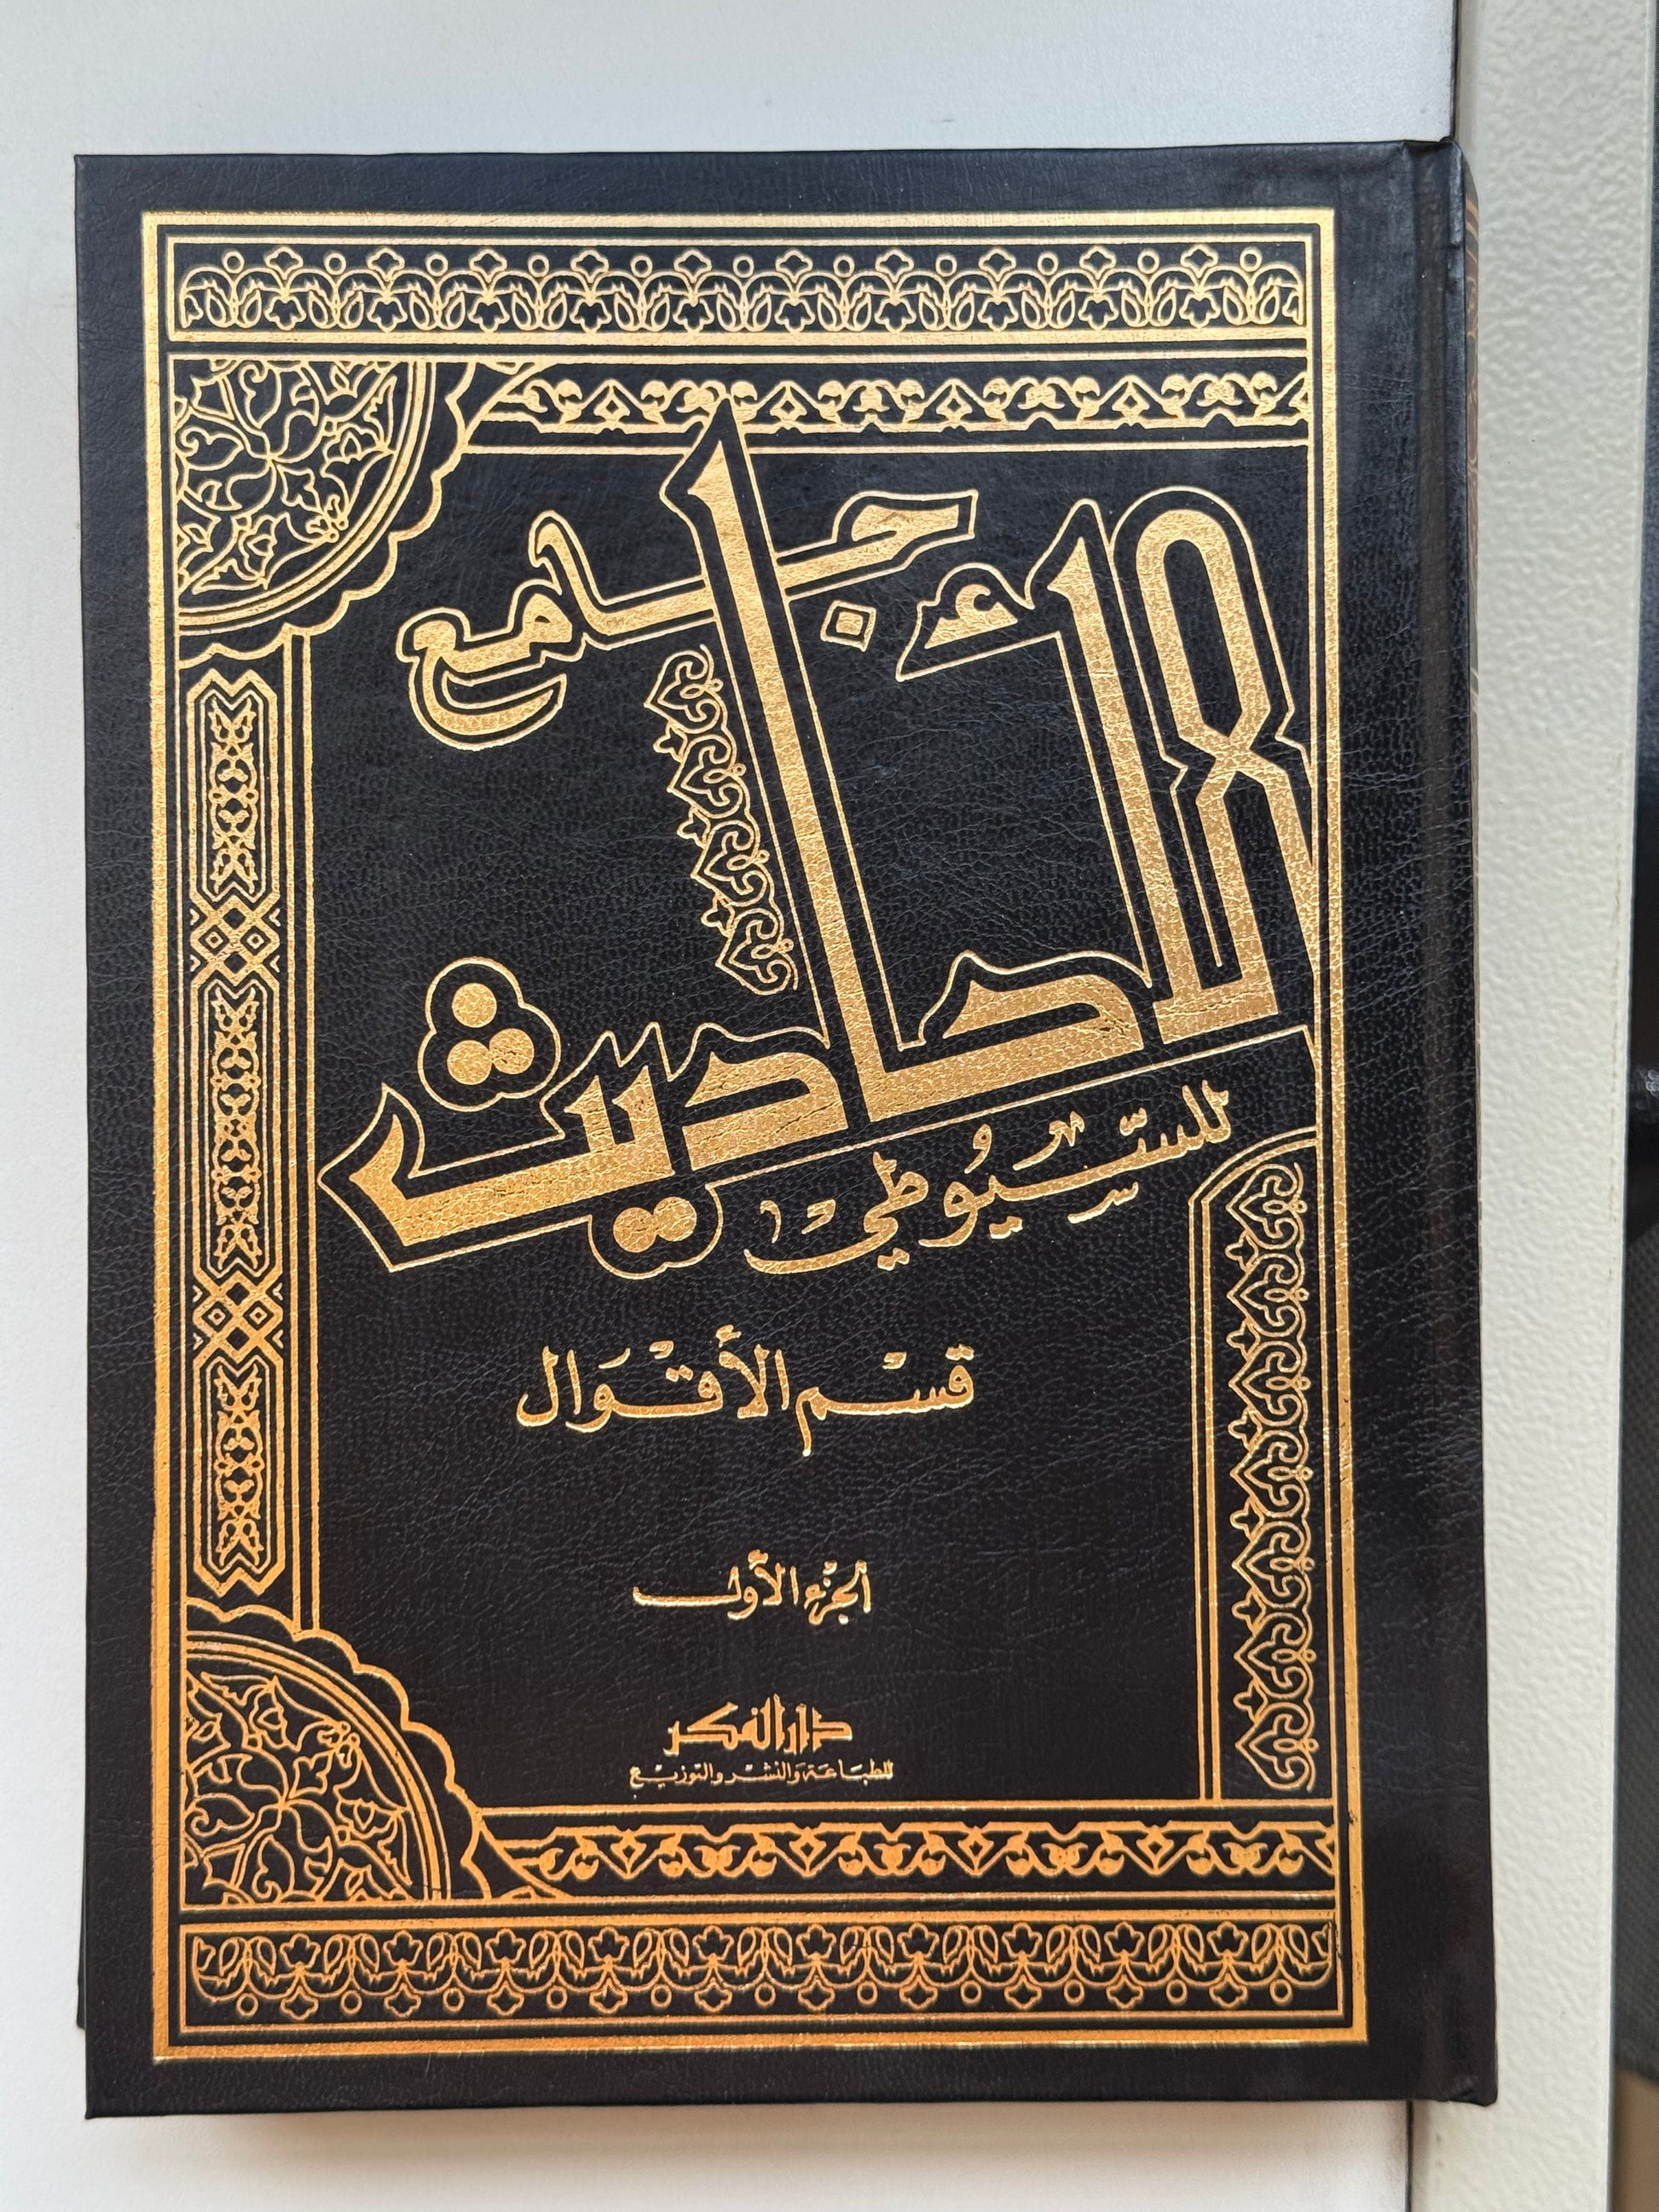 جامع
الأحاديث
للسّيُوطي
قسْم الأقْوَال
الجزْء الأول
دار الفكر
للطبَاعَة وَالنشْر وَالتوزيْع